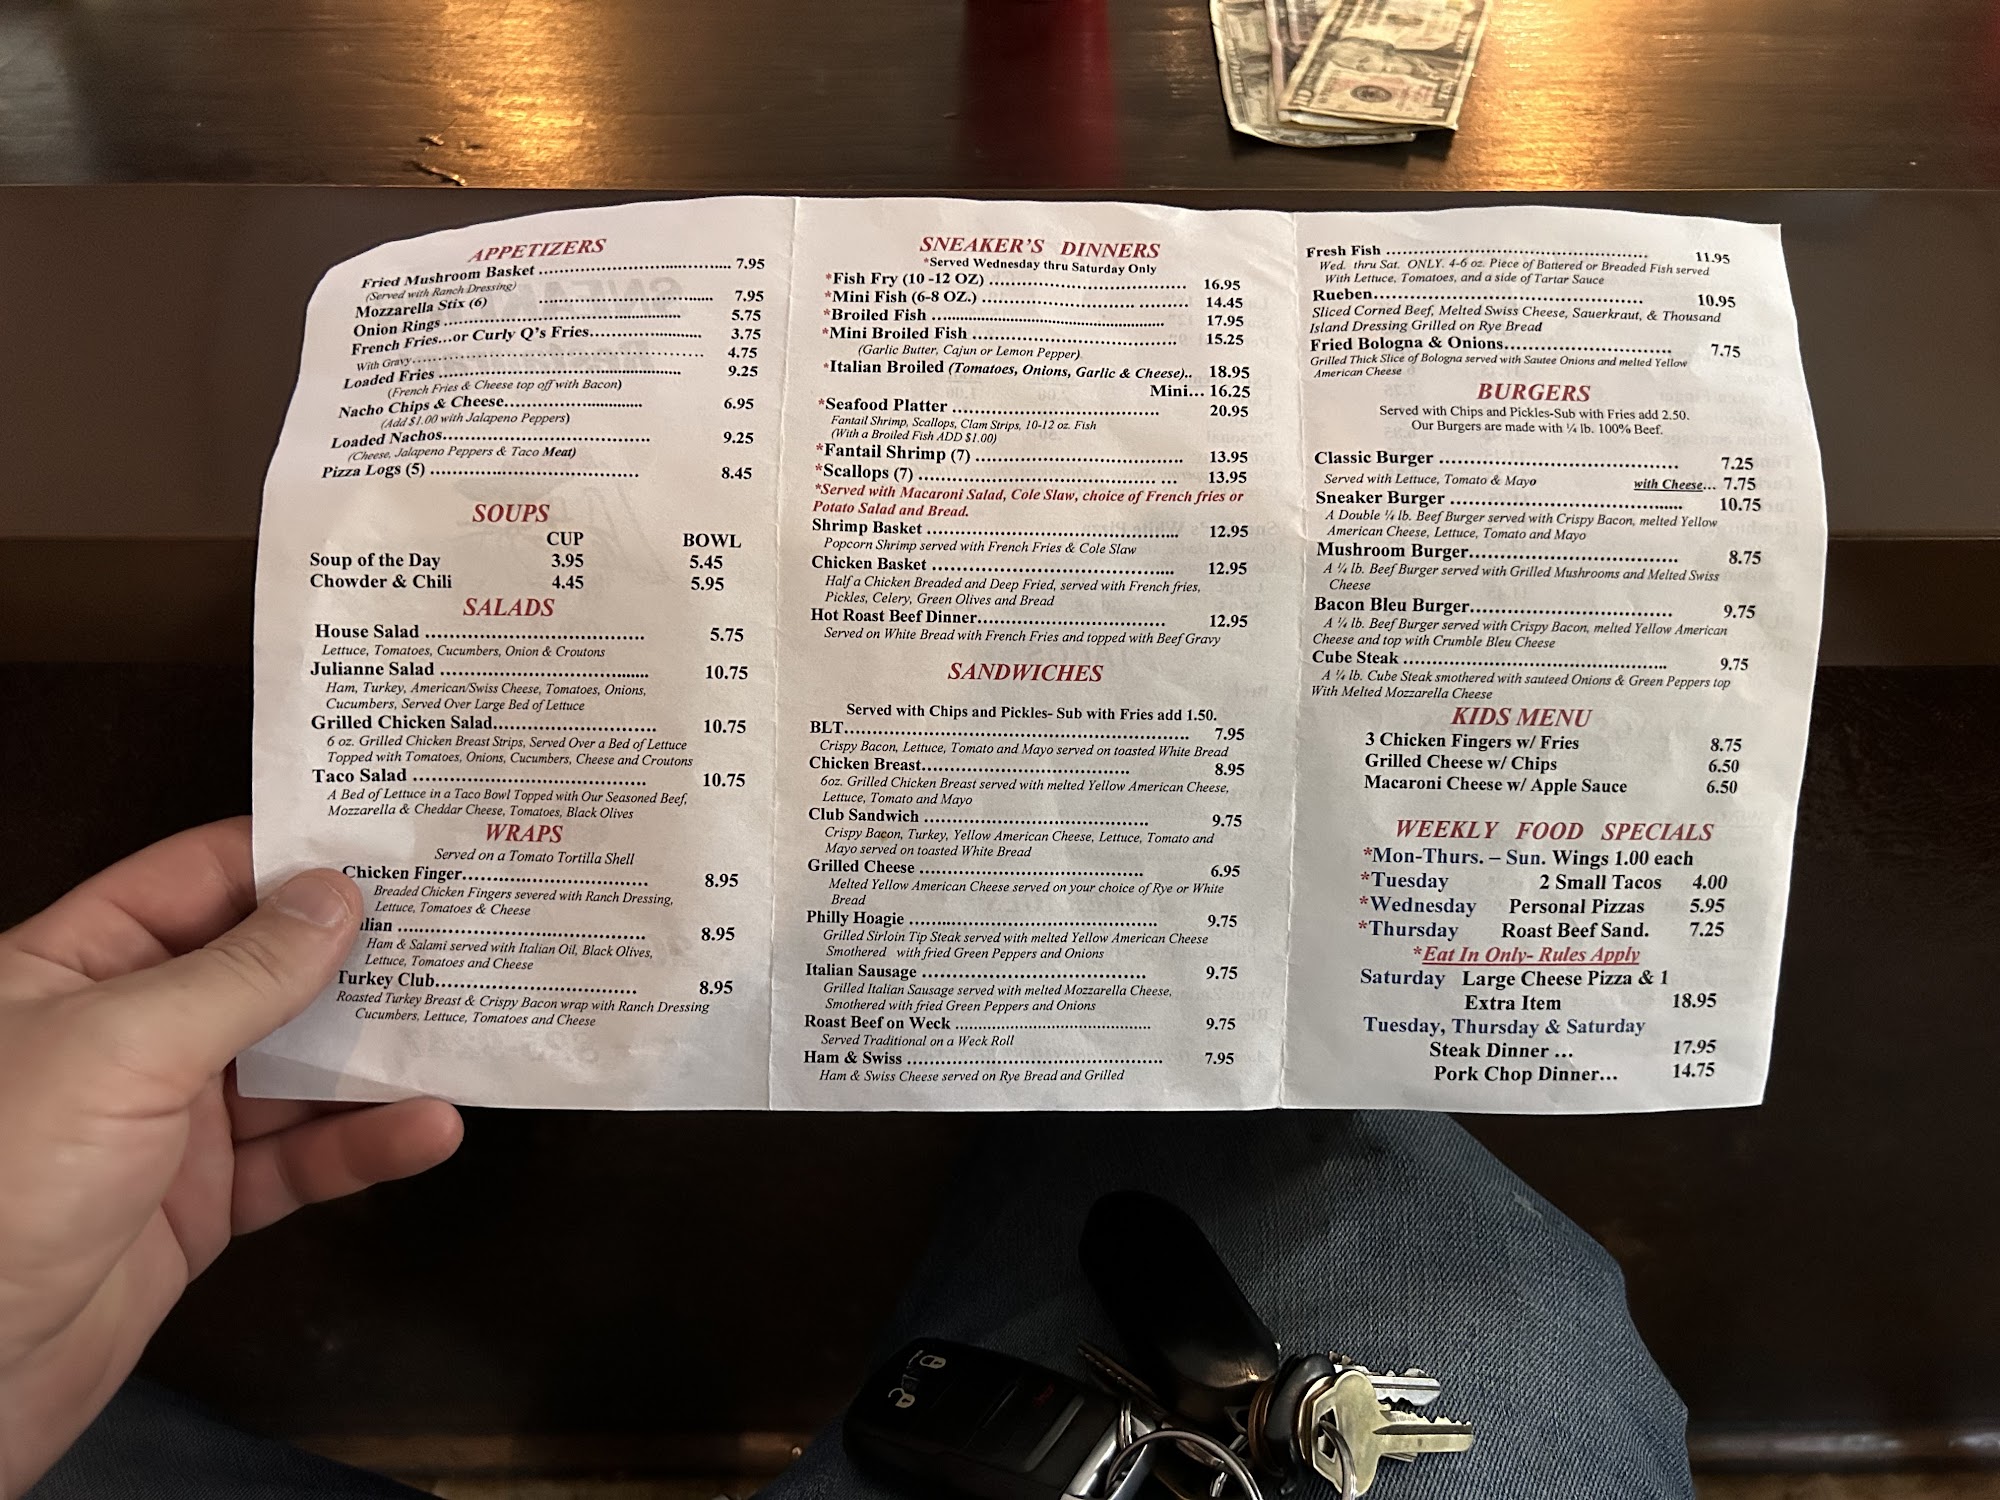 APPETIZERS
Fried Mushroom Basket ............ 7.95
(Served with Ranch Dressing)
Mozzarella Stix (6) ............ 7.95
Onion Rings ............ 5.75
French Fries...or Curly Q's Fries............ 3.75
With Gravy............ 4.75
Loaded Fries ............ 9.25
(French Fries & Cheese top off with Bacon)
Nacho Chips & Cheese............ 6.95
(Add $1.00 with Jalapeno Peppers)
Loaded Nachos............ 9.25
(Cheese, Jalapeno Peppers & Taco Meat)
Pizza Logs (5) ............ 8.45
SOUPS
CUP BOWL
Soup of the Day 3.95 5.45
Chowder & Chili 4.45 5.95
SALADS
House Salad ............ 5.75
Lettuce, Tomatoes, Cucumbers, Onion & Croutons
Julianne Salad ............ 10.75
Ham, Turkey, American/Swiss Cheese, Tomatoes, Onions,
Cucumbers, Served Over Large Bed of Lettuce
Grilled Chicken Salad............ 10.75
6 oz. Grilled Chicken Breast Strips, Served Over a Bed of Lettuce
Topped with Tomatoes, Onions, Cucumbers, Cheese and Croutons
Taco Salad ............ 10.75
A Bed of Lettuce in a Taco Bowl Topped with Our Seasoned Beef,
Mozzarella & Cheddar Cheese, Tomatoes, Black Olives
WRAPS
Served on a Tomato Tortilla Shell
Chicken Finger............ 8.95
Breaded Chicken Fingers severed with Ranch Dressing,
Lettuce, Tomatoes & Cheese
lian ............ 8.95
Ham & Salami served with Italian Oil, Black Olives,
Lettuce, Tomatoes and Cheese
Turkey Club............ 8.95
Roasted Turkey Breast & Crispy Bacon wrap with Ranch Dressing
Cucumbers, Lettuce, Tomatoes and Cheese
SNEAKER'S DINNERS
*Served Wednesday thru Saturday Only
*Fish Fry (10 -12 OZ) ............ 16.95
*Mini Fish (6-8 OZ.) ............ 14.45
*Broiled Fish ............ 17.95
*Mini Broiled Fish ............ 15.25
(Garlic Butter, Cajun or Lemon Pepper)
*Italian Broiled (Tomatoes, Onions, Garlic & Cheese).. 18.95
Mini... 16.25
*Seafood Platter ............ 20.95
Fantail Shrimp, Scallops, Clam Strips, 10-12 oz. Fish
(With a Broiled Fish ADD $1.00)
*Fantail Shrimp (7) ............ 13.95
*Scallops (7) ............ 13.95
*Served with Macaroni Salad, Cole Slaw, choice of French fries or
Potato Salad and Bread.
Shrimp Basket ............ 12.95
Popcorn Shrimp served with French Fries & Cole Slaw
Chicken Basket ............ 12.95
Half a Chicken Breaded and Deep Fried, served with French fries,
Pickles, Celery, Green Olives and Bread
Hot Roast Beef Dinner............ 12.95
Served on White Bread with French Fries and topped with Beef Gravy
SANDWICHES
Served with Chips and Pickles- Sub with Fries add 1.50.
BLT............ 7.95
Crispy Bacon, Lettuce, Tomato and Mayo served on toasted White Bread
Chicken Breast............ 8.95
6oz. Grilled Chicken Breast served with melted Yellow American Cheese,
Lettuce, Tomato and Mayo
Club Sandwich ............ 9.75
Crispy Bacon, Turkey, Yellow American Cheese, Lettuce, Tomato and
Mayo served on toasted White Bread
Grilled Cheese ............ 6.95
Melted Yellow American Cheese served on your choice of Rye or White
Bread
Philly Hoagie ............ 9.75
Grilled Sirloin Tip Steak served with melted Yellow American Cheese
Smothered with fried Green Peppers and Onions
Italian Sausage ............ 9.75
Grilled Italian Sausage served with melted Mozzarella Cheese,
Smothered with fried Green Peppers and Onions
Roast Beef on Weck ............ 9.75
Served Traditional on a Weck Roll
Ham & Swiss ............ 7.95
Ham & Swiss Cheese served on Rye Bread and Grilled
Fresh Fish ............ 11.95
Wed. thru Sat. ONLY. 4-6 oz. Piece of Battered or Breaded Fish served
With Lettuce, Tomatoes, and a side of Tartar Sauce
Rueben............ 10.95
Sliced Corned Beef, Melted Swiss Cheese, Sauerkraut, & Thousand
Island Dressing Grilled on Rye Bread
Fried Bologna & Onions............ 7.75
Grilled Thick Slice of Bologna served with Sautee Onions and melted Yellow
American Cheese
BURGERS
Served with Chips and Pickles-Sub with Fries add 2.50.
Our Burgers are made with ¼ lb. 100% Beef.
Classic Burger ............ 7.25
Served with Lettuce, Tomato & Mayo with Cheese... 7.75
Sneaker Burger ............ 10.75
A Double ¼ lb. Beef Burger served with Crispy Bacon, melted Yellow
American Cheese, Lettuce, Tomato and Mayo
Mushroom Burger............ 8.75
A ¼ lb. Beef Burger served with Grilled Mushrooms and Melted Swiss
Cheese
Bacon Bleu Burger............ 9.75
A ¼ lb. Beef Burger served with Crispy Bacon, melted Yellow American
Cheese and top with Crumble Bleu Cheese
Cube Steak ............ 9.75
A ¼ lb. Cube Steak smothered with sauteed Onions & Green Peppers top
With Melted Mozzarella Cheese
KIDS MENU
3 Chicken Fingers w/ Fries 8.75
Grilled Cheese w/ Chips 6.50
Macaroni Cheese w/ Apple Sauce 6.50
WEEKLY FOOD SPECIALS
*Mon-Thurs. – Sun. Wings 1.00 each
*Tuesday 2 Small Tacos 4.00
*Wednesday Personal Pizzas 5.95
*Thursday Roast Beef Sand. 7.25
*Eat In Only- Rules Apply
Saturday Large Cheese Pizza & 1
Extra Item 18.95
Tuesday, Thursday & Saturday
Steak Dinner ... 17.95
Pork Chop Dinner... 14.75